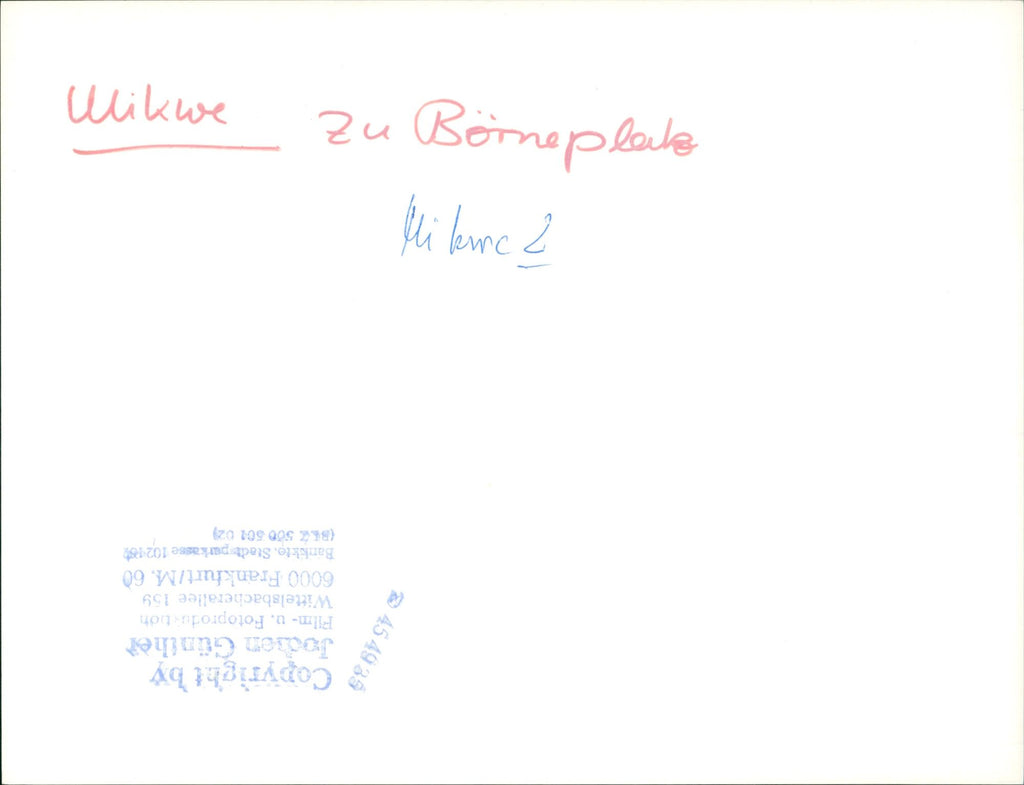 Mikwe zu Börneplatz
Mikwe 2
Copyright by
Jochen Günther
Film- u. Fotoproduktion
Wittelsbacherallee 159
6000 Frankfurt/M. 60
Bankkto. Stadtsparkasse 102467
(BLZ 500 501 02)
454939